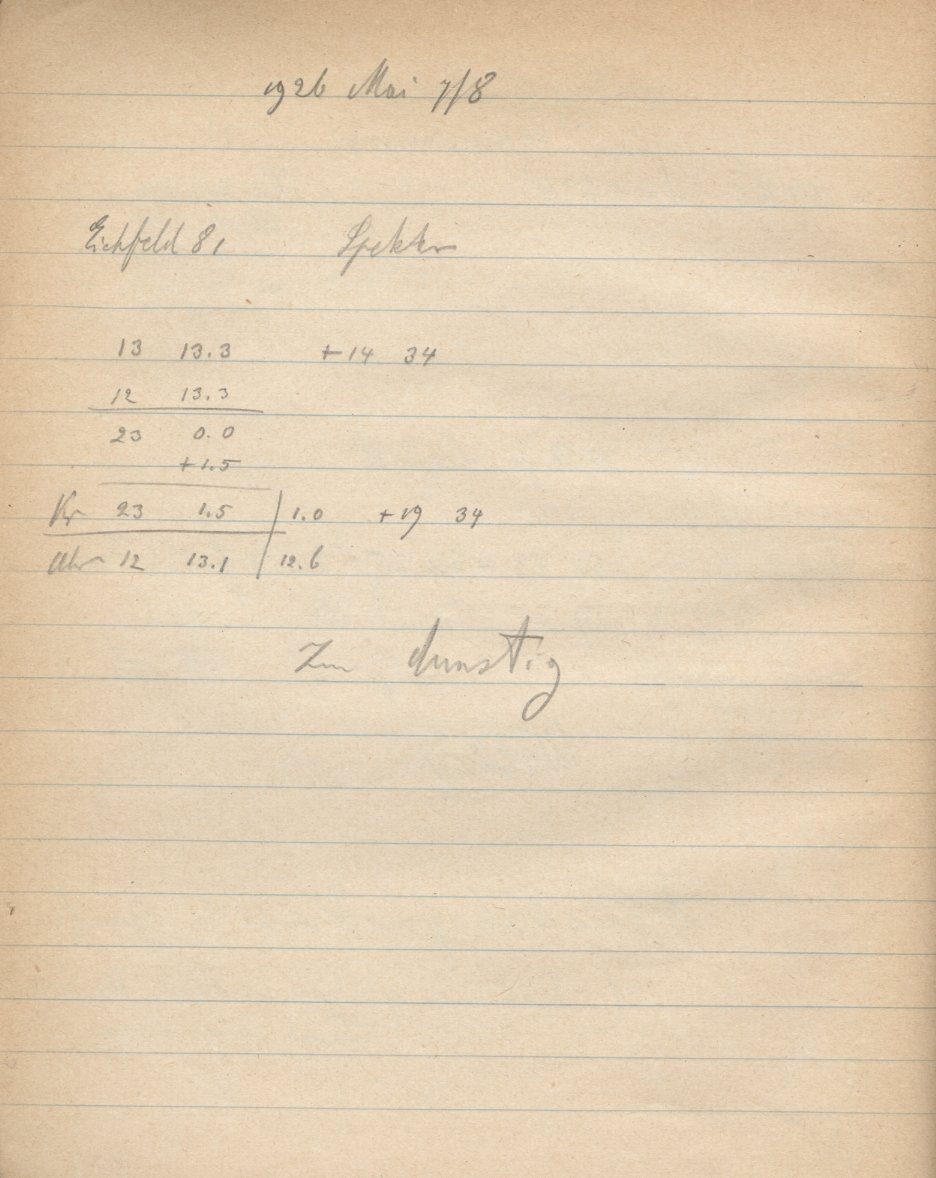 1926 Mai 7/8
Eichfeld 81 Spektr
13 13.3 +14 34
12 13.3
23 0.0
+1.5
Kr 23 1.5 1.0 +19 34
Uhr 12 13.1 12.6
Zu dunstig